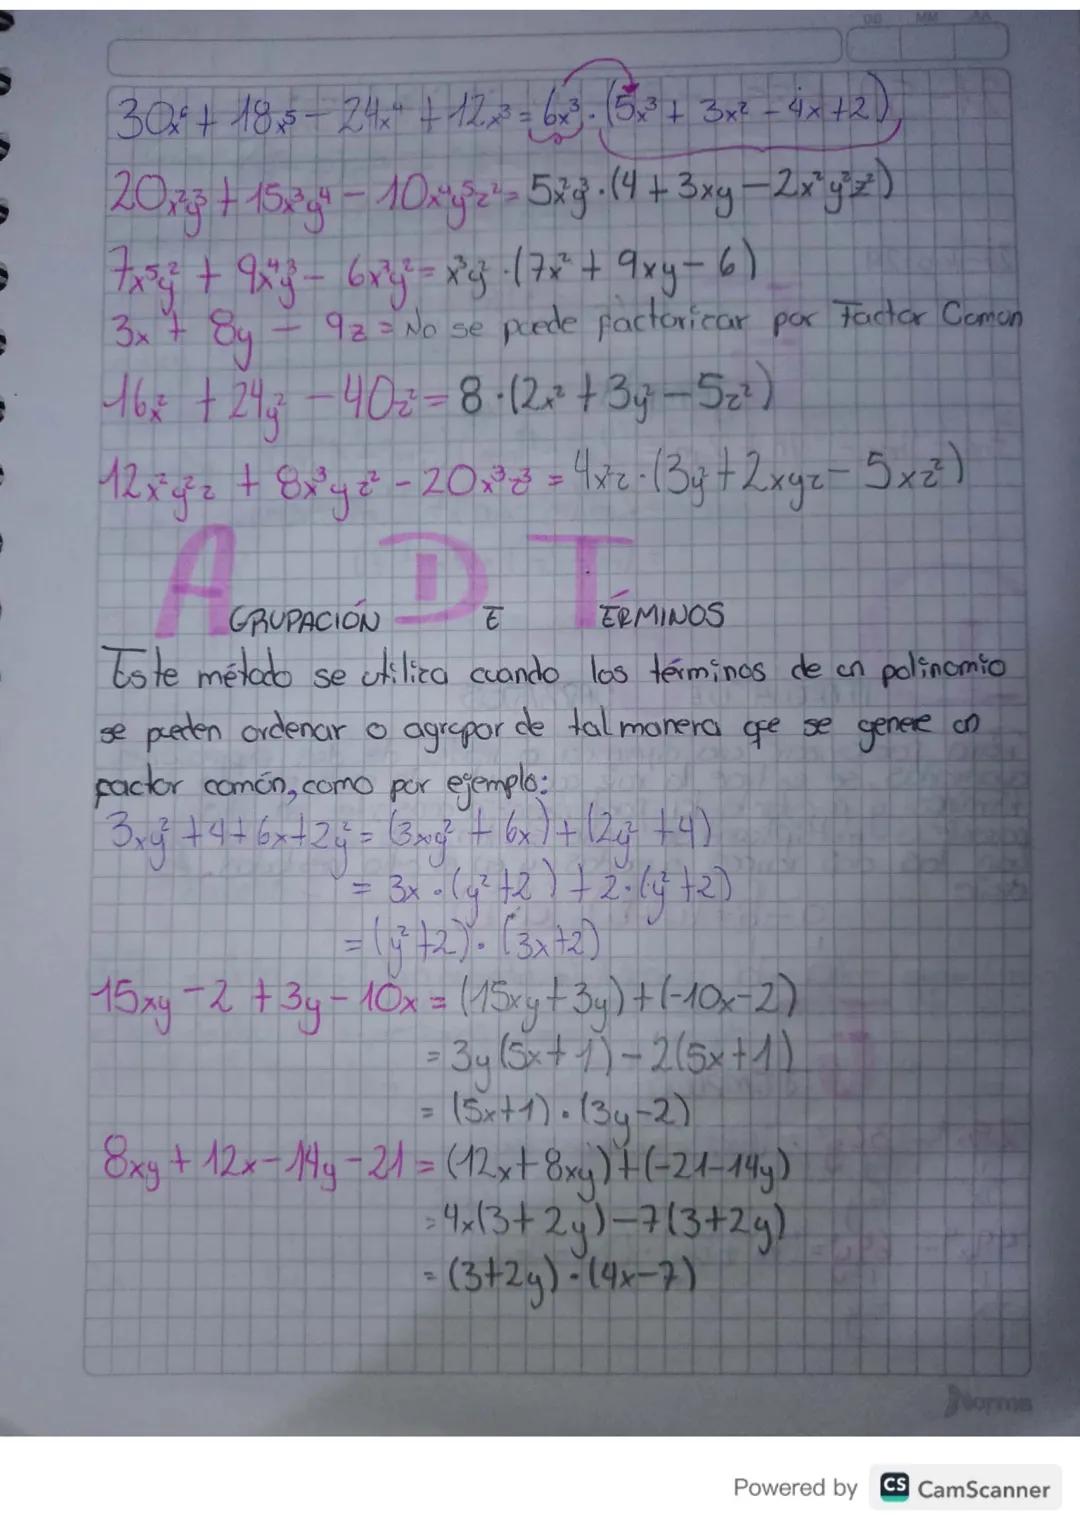 DD MM AA
30x⁶ + 18x⁵ - 24x⁴ + 12x³ = 6x³ · (5x³ + 3x² - 4x + 2)
20x²y³ + 15x³y⁴ - 10x⁴y⁵z² = 5x²y³ · (4 + 3xy - 2x²y²z²)
7x⁵y² + 9x⁴y³ - 6x³y² = x³y² · (7x² + 9xy - 6)
3x + 8y - 9z = No se puede factoricar por Factor Comun
16x² + 24y² - 40z² = 8 · (2x² + 3y² - 5z²)
12x²y²z + 8x³yz² - 20x³z³ = 4x²z · (3y² + 2xyz - 5xz²)
AGRUPACIÓN DE TÉRMINOS
Este método se utiliza cuando los términos de un polinomio
se pueden ordenar o agrupar de tal manera que se genere un
factor común, como por ejemplo:
3xy² + 4 + 6x + 2y² = (3xy² + 6x) + (2y² + 4)
= 3x · (y² + 2) + 2 · (y² + 2)
= (y² + 2) · (3x + 2)
15xy - 2 + 3y - 10x = (15xy + 3y) + (-10x - 2)
= 3y(5x + 1) - 2(5x + 1)
= (5x + 1) · (3y - 2)
8xy + 12x - 14y - 21 = (12x + 8xy) + (-21 - 14y)
= 4x(3 + 2y) - 7(3 + 2y)
= (3 + 2y) · (4x - 7)
Norma
Powered by CS CamScanner